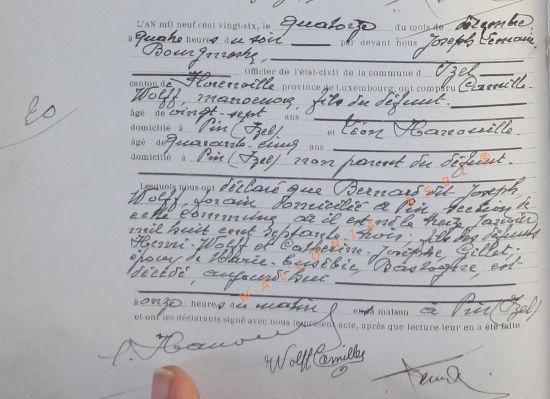 20
L'AN mil neuf cent vingt-six, le quatorze du mois de décembre
à quatre heures du soir par devant nous Joseph Lemaire,
Bourgmestre,
Officier de l'état-civil de la commune d' Izel
canton de Florenville, province de Luxembourg, ont comparu Camille
Wolff, manoeuvre, fils du défunt.
âgé de vingt-sept ans
domicilié à Pin (Izel) et Léon Hanouille
âgé de quarante-cinq ans
domicilié à Pin (Izel) non parent du défunt.
Lesquels nous ont déclaré que Bernard dit Joseph
Wolff, forain domicilié à Pin, section de
cette commune, où il est né le treize Janvier
mil huit cent septante-trois, fils des défunts
Henri Wolff et Catherine-Josèphe Gillet,
époux de Marie-Eusébie Bastogne, est
décédé, aujourd'hui
à onze heures du matin en sa maison à Pin (Izel)
et ont les déclarants signé avec nous le présent acte, après que lecture leur en a été faite
Wolff Camille